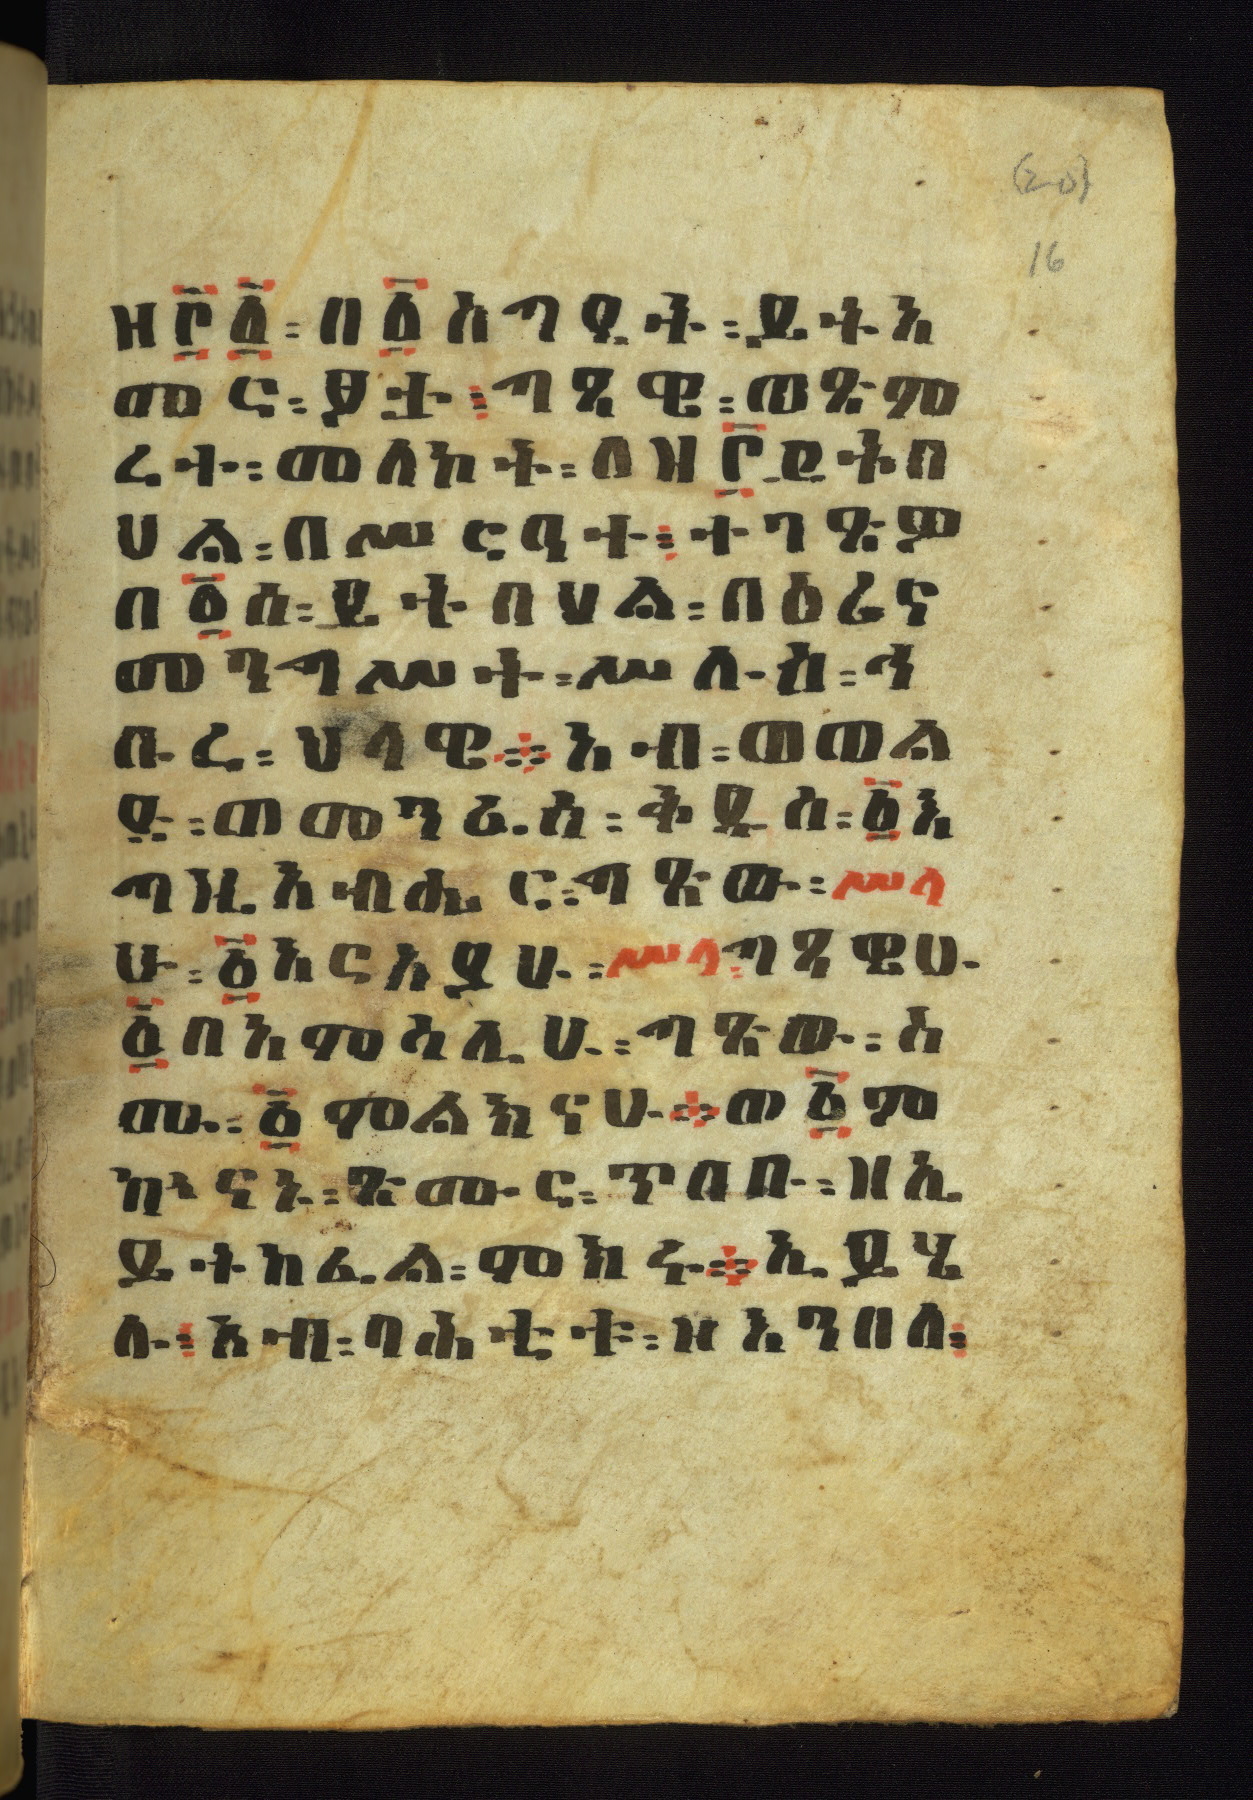 (20)
16
ዘ፫፩፡በ፩አጣየት፡ይትአ
መር፡ፆታ፡ጣፄዌ፡ወጽም
ረት፡መለኮት፡ለዝ፫ይትበ
ሀል፡በሥርዓት፡ተገጽዎ
በ፩ሰ፡ይትበሀል፡በዕሪና
መንግሥት፡ሥሉስ፡ኅ
ቡረ፡ህላዌ፨አብ፡ወወል
ድ፡ወመንፈስ፡ቅዱስ፡፩እ
ግዚአብሔር፡ገጽ፡ሥላ
ሁ፡፩አርአያሁ፡ሥላ፡ጣፄዌሁ
፩በአምሳሊሁ፡ገጽ፡ስ
ሙ፡፩መልክናሁ፨ወ፩ም
ኵናኑ፡ጽሙር፡ጥበቡ፡ዘኢ
ይትከፈል፡ምክሩ፨ኢይሄ
ሉ፡አብ፡ባሕቲቱ፡ዘእንበለ፡